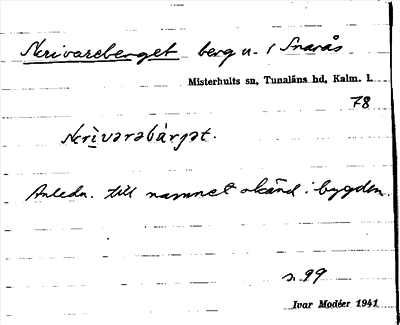 Skrivareberget berg n. i Snarås
Misterhults sn, Tunaläns hd, Kalm. l.
78
skrìvarəbàrjət.
Anledn. till namnet okänd i bygden.
s. 99
Ivar Modéer 1941